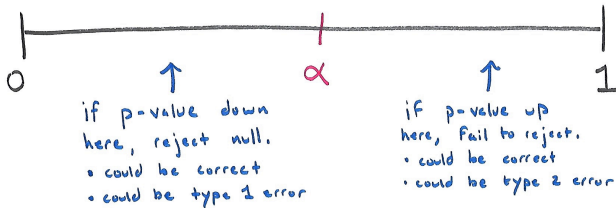 0
α
1
if p-value down
here, reject null.
• could be correct
• could be type 1 error
if p-value up
here, Fail to reject.
• could be correct
• could be type 2 error